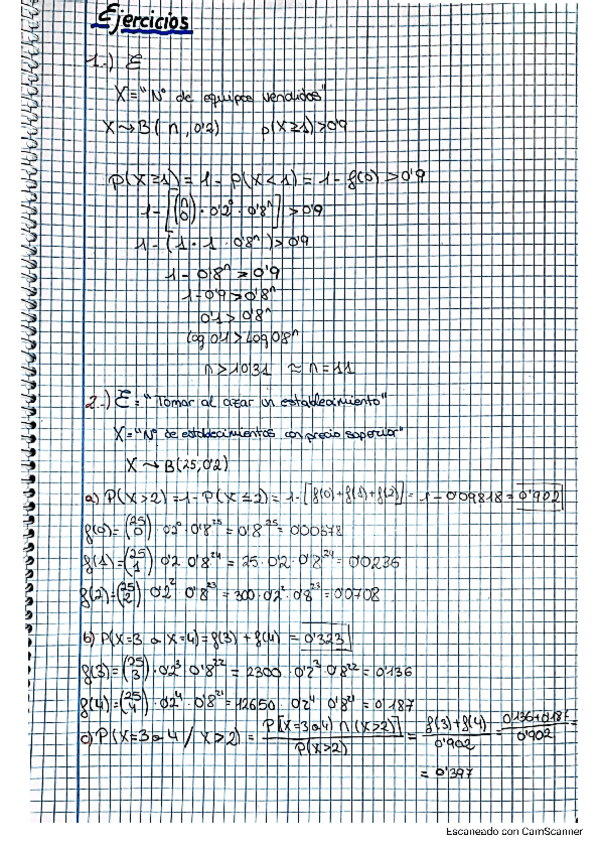 Ejercicios
1.-) E
X="Nº de equipos vendidos"
X→B(n, 0'2) p(X≥1)>0'9
p(X≥1)=1-p(X<1)=1-f(0)>0'9
1-[(n 0)·0'2⁰·0'8ⁿ]>0'9
1-(1·1·0'8ⁿ)>0'9
1-0'8ⁿ>0'9
1-0'9>0'8ⁿ
0'1>0'8ⁿ
log 0'1>log 0'8ⁿ
n>10'31 ≈ n=11
2.-) E="Tomar al azar un establecimiento"
X="Nº de establecimientos con precio superior"
X→B(25,0'2)
a) P(X>2)=1-P(X≤2)=1-[f(0)+f(1)+f(2)]=1-0'09818=0'902
f(0)=(25 0)·0'2⁰·0'8²⁵=0'8²⁵=0'00378
f(1)=(25 1)·0'2·0'8²⁴=25·0'2·0'8²⁴=0'0236
f(2)=(25 2)·0'2²·0'8²³=300·0'2²·0'8²³=0'0708
b) P(X=3 o X=4)=f(3)+f(4)=0'323
f(3)=(25 3)·0'2³·0'8²²=2300·0'2³·0'8²²=0'136
f(4)=(25 4)·0'2⁴·0'8²¹=12650·0'2⁴·0'8²¹=0'187
c) P(X=3 o 4/X>2)=P[X=3 o 4)∩(X>2)]/P(X>2)=f(3)+f(4)/0'902=0'136+0'187/0'902=
=0'397
Escaneado con CamScanner